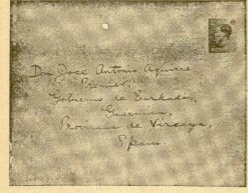 Don José Antonio Aguirre
"Premier"
Gobierno de Euzkadi,
Guernica,
Provincia de Vizcaya,
Spain